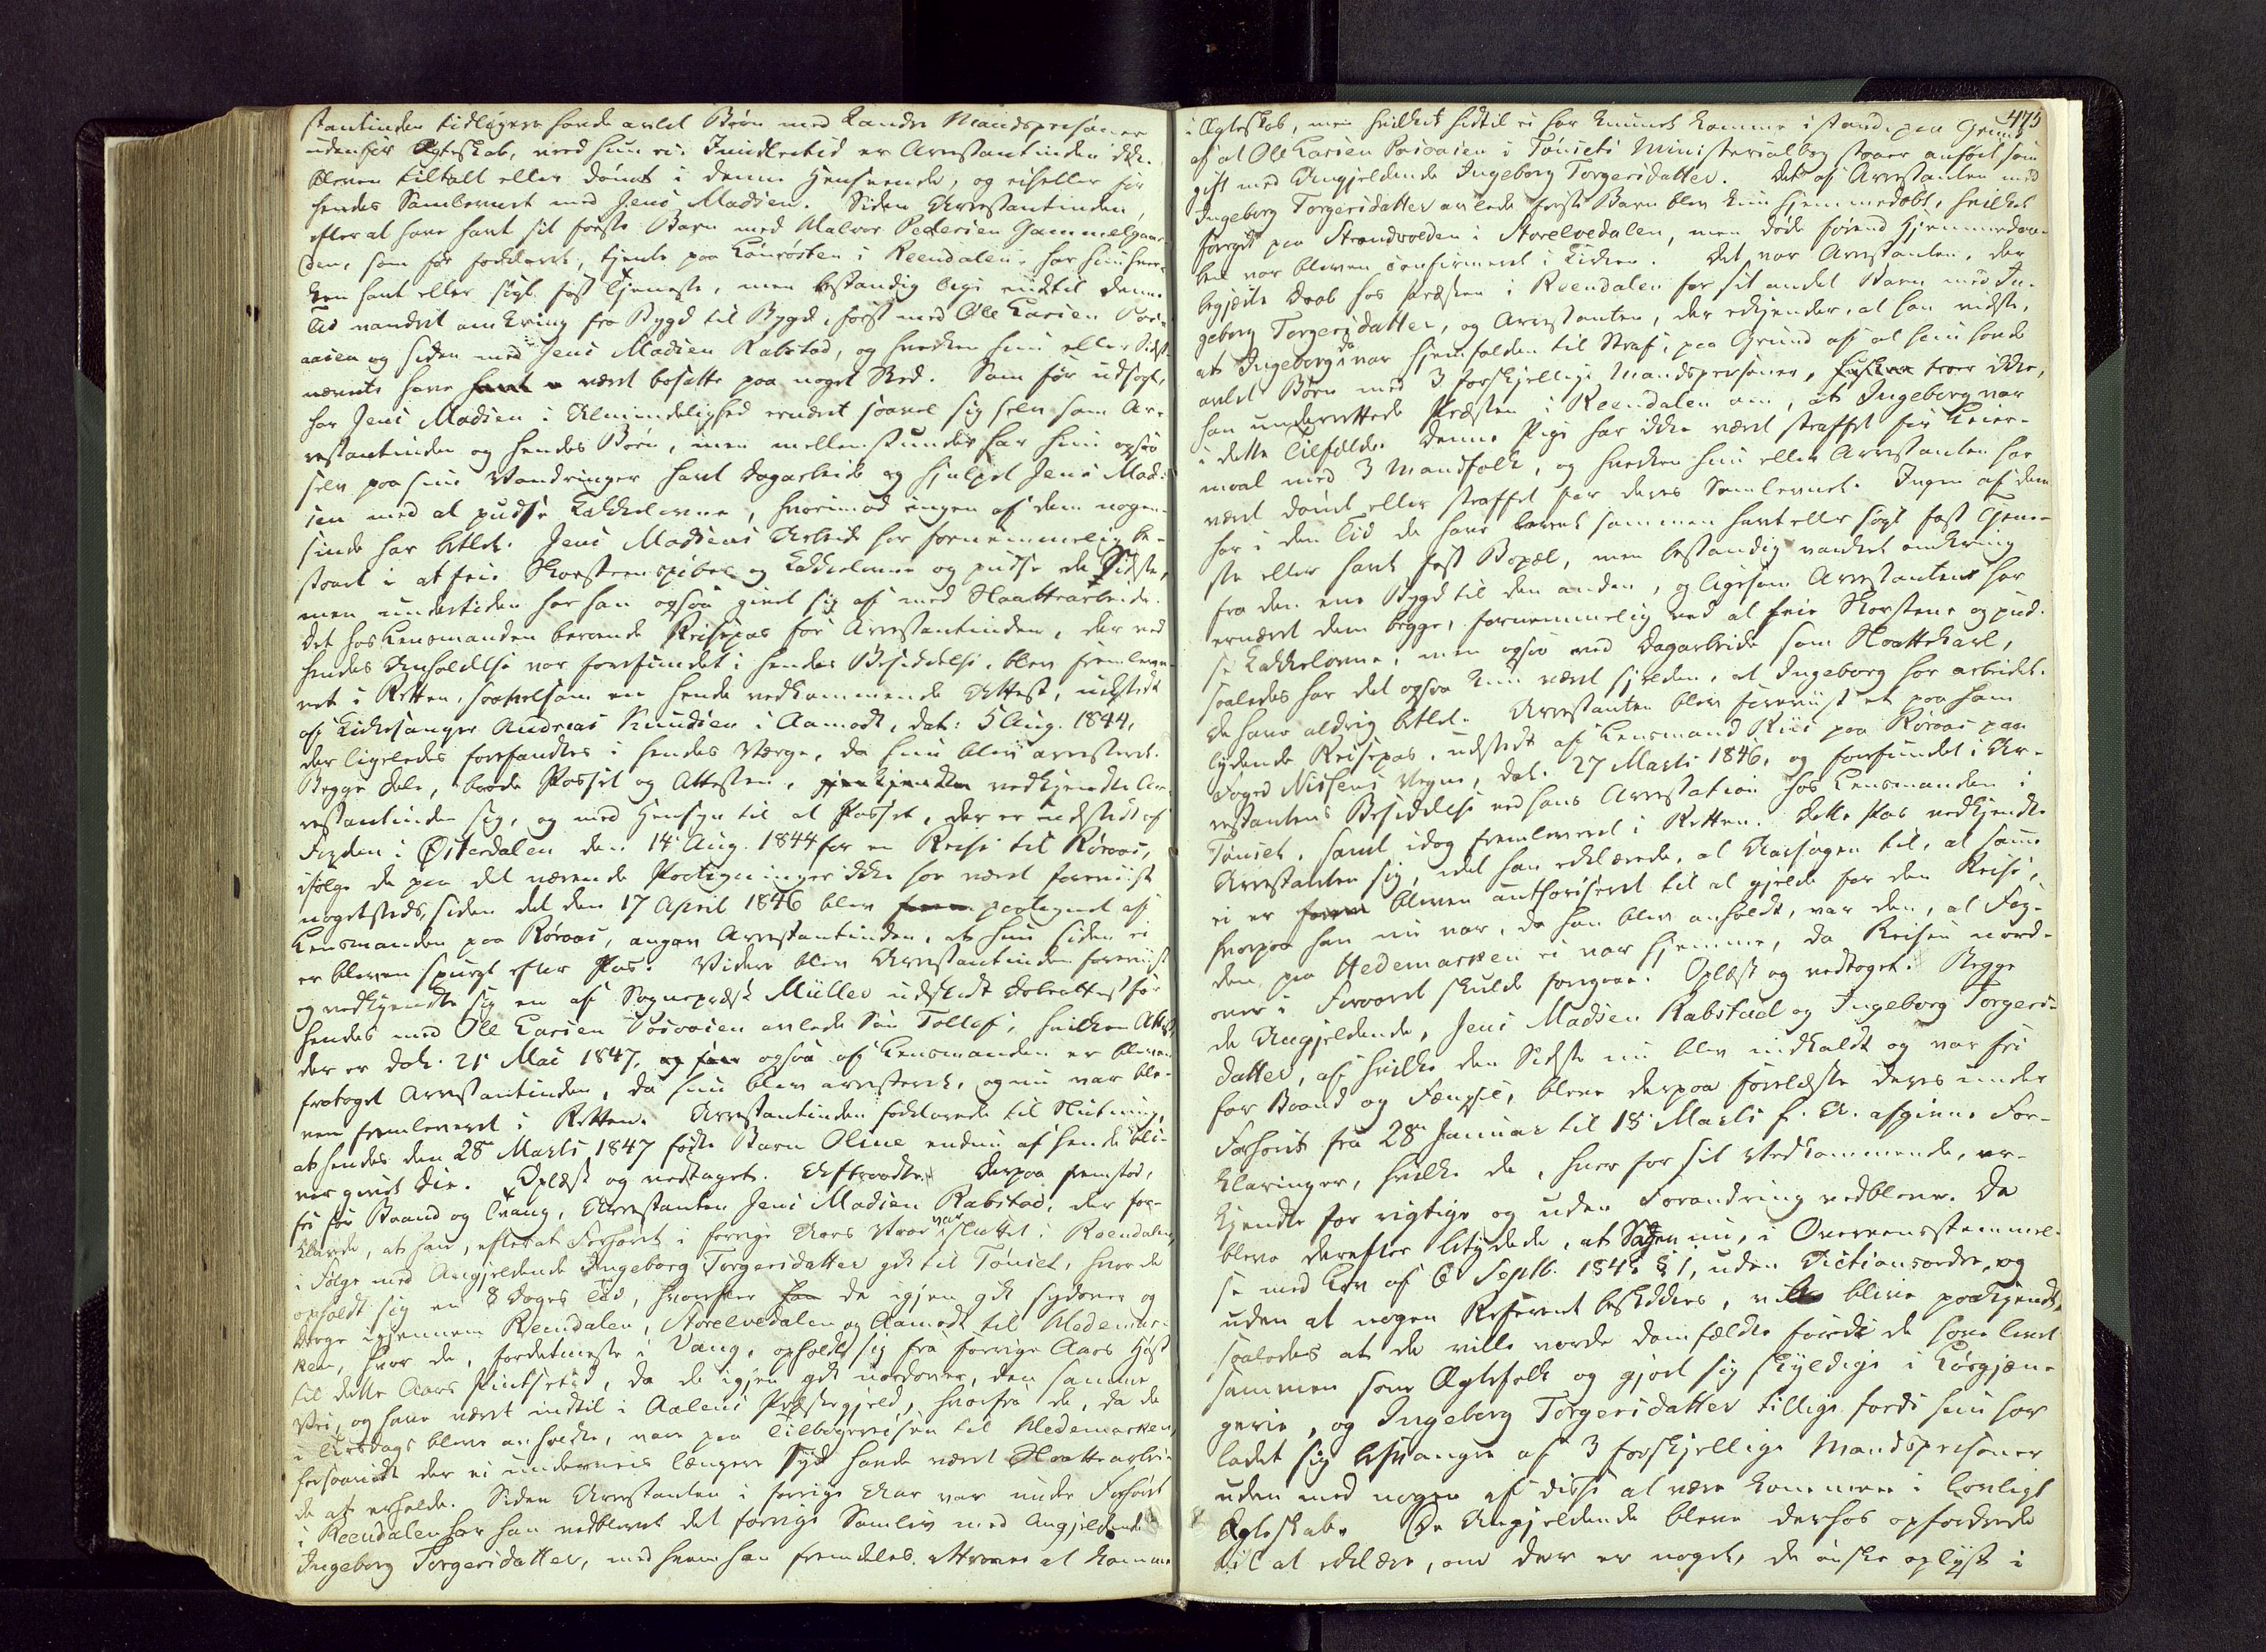 stantinden tidligere havde avlet Børn med 2 andre Mandspersoner
udenfor Ægteskab, ved hun ei. Imidlertid er Arrestantinden ikke
bleven tiltalt eller dømt i denne Henseende, og eiheller for
hendes Samlevnet med Jens Madsen. Siden Arrestantinden,
efter at have havt sit første Barn med Halvor Pedersen Gammelgaar-
den, som før forklaret, tjente paa Lønrøsten i Reendalen, har hun hver-
ken havt eller søgt fast Tjeneste, men bestandig lige indtil denne
Tid vandret omkring fra Bygd til Bygd, først med Ole Larsen Vors-
aasen og siden med Jens Madsen Rabstad, og hverken hun eller Sidst-
nævnte have været bosatte paa noget Sted. Som før udsagt,
har Jens Madsen i Almindelighed ernæret saavel sig selv som Ar-
restantinden og hendes Børn, men mellemstunder har hun ogsaa
selv paa sine Vandringer havt Dagarbeide og hjulpet Jens Mad-
sen med at pudse Kakkelovne, hvorimod ingen af dem nogen-
sinde har betlet. Jens Madsens Arbeide har fornemmelig be-
staaet i at feie Skorsteenspiber og Kakkelovne og pudse de Sidste,
men undertiden har han ogsaa givet sig af med Slaattearbeide.
Det hos Lensmanden beroende Reisepas for Arrestantinden, der ved
hendes Anholdelse var forefundet i hendes Besiddelse, blev fremleve-
ret i Retten, saavelsom en hende vedkommende Attest, udstedt
af Kirkesanger Andreas Knudsen i Aamodt, dat: 5 Aug. 1844,
der ligeledes forefandtes i hendes Værge, da hun blev arresteret.
Begge Dele, baade Passet og Attesten, vedkjendte Ar-
restantinden sig, og med Hensyn til at Passet, der er udstedt af
Fogden i Østerdalen den 14 Aug. 1844 for en Reise til Røraas,
ifølge de paa det værende Paategninger ikke har været foreviist
nogetsteds, siden det den 17 April 1846 blev paategnet af
Lensmanden paa Røraas, angav Arrestantinden, at hun siden ei
er bleven spurgt efter Pas. Videre blev Arrestantinden foreviist
og vedkjendte sig en af Sognepræst Müller udstedt Dobeattest for
hendes med Ole Larsen Vorsaasen avlede Søn Tollef, hvilken Attest,
der er dat. 21 Mai 1847, ogsaa af Lensmanden er bleven
frataget Arrestantinden, da hun blev arresteret, og nu var ble-
ven fremleveret i Retten. Arrestantinden forklarede til Slutning,
at hendes den 28 Marts 1847 fødte Barn Oline endnu af hende bli-
ver givet Die. Oplæst og vedtaget. Aftraadte. Derpaa fremstod,
fri for Baand og Tvang, Arrestanten Jens Madsen Rabstad, der for-
klarede, at han, efterat Forhøret i forrige Aars Vaar var sluttet i Reendalen,
i Følge med Angjeldende Ingeborg Torgersdatter gik til Tønset, hvor de
opholdt sig en 8 Dages Tid, hvorefter de igjen gik sydover og
begge igjennem Reendalen, Storelvedalen og Aamodt til Hedemar-
ken, hvor de, fordetmeste i Vang, opholdt sig fra forrige Aars Høst
til dette Aars Pintsetid, da de igjen gik nordover, den samme
Vei, og have været indtil i Aalens Præstegjeld, hvorfra de, da de
i Tirsdags bleve anholdte, vare paa Tilbagereisen til Hedemarken,
forsaavidt der ei underveis længere Syd havde været Slaattearbei-
de at erholde. Siden Arrestanten i forrige Aar var under Forhør
i Reendalen har han vedblevet det forrige Samliv med Angjeldende
Ingeborg Torgersdatter, med hvem han fremdeles attraaer at komme
475
i Ægteskab, men hvilket hidtil ei har kunnet komme istand paa Grund
af at Ole Larsen Vorsaasen i Tønsets Ministerialbog staaer anført som
gift med Angjeldende Ingeborg Torgersdatter. Det af Arrestanten med
Ingeborg Torgersdatter avlede første Barn blev kun hjemmedøbt, hvilket
foregik paa Strandvolden i Storelvedalen, men døde førend Hjemmedaa-
ben var bleven confirmeret i Kirken. Det var Arrestanten, der
begjærte Daab hos Præsten i Reendalen for sit andet Barn med In-
geborg Torgersdatter, og Arrestanten, der erkjender, at han vidste,
at Ingeborg da var hjemfalden til Straf, paa Grund af at hun havde
avlet Børn med 3 forskjellige Mandspersoner, troer ikke,
han underrettede Præsten i Reendalen om, at Ingeborg var
i dette Tilfælde. Denne Pige har ikke været straffet for Leier-
maal med 3 Mandfolk, og hverken hun eller Arrestanten har
været dømt eller straffet for deres Samlevnet. Ingen af dem
har i den Tid de have levet sammen havt eller søgt fast Tjene-
ste eller havt fast Bopæl, men bestandig vandret omkring
fra den ene Bygd til den anden, og ligesom Arrestanten har
ernæret dem begge, fornemmelig ved at feie Skorstene og pud-
se Kakkelovne, men ogsaa ved Dagarbeide som Slaattekarl,
saaledes har det ogsaa kun været sjelden, at Ingeborg har arbeidet.
De have aldrig betlet. Arrestanten blev foreviist et paa ham
lydende Reisepas, udstedt af Lensmand Riis paa Røraas paa
Foged Nissens Vegne, dat. 27 Marts 1846, og forefundet i Ar-
restantens Besiddelse ved hans Arrestation hos Lensmanden i
Tønset, samt idag fremleveret i Retten. Dette Pas vedkjendte
Arrestanten sig, idet han erklærede, at Aarsagen til, at samme
ei er bleven authoriseret til at gjelde for den Reise,
hvorpaa han nu var, da han blev anholdt, var den, at Fog-
den paa Hedemarken ei var hjemme, da Reisen nord-
over i Foraaret skulde foregaae. Oplæst og vedtaget. Begge
de Angjeldende, Jens Madsen Rabstad og Ingeborg Torgers-
datter, af hvilke den Sidste nu blev indkaldt og var fri
for Baand og Fængsel, bleve derpaa forelæste deres under
Forhøret fra 28de Januar til 18 Marts f. A. afgivne For-
klaringer, hvilke de, hver for sit Vedkommende, er-
kjendte for rigtige og uden Forandring vedbleve. De
bleve derefter betydede, at Sagen nu, i Overeensstemmel-
se med Lov af 6 Septb. 1845 § 1, uden Actionsordre, og
uden at nogen Referent beskikkes, vil blive paakjendt,
saaledes at de ville vorde domfældte fordi de have levet
sammen som Ægtefolk og gjort sig skyldige i Løsgjæn-
gerie, og Ingeborg Torgersdatter tillige fordi hun har
ladet sig besvangre af 3 forskjellige Mandspersoner
uden med nogen af disse at være kommen i lovligt
Ægteskab. De Angjeldende bleve derhos opfordrede
til at erklære, om der er noget, de ønske oplyst i